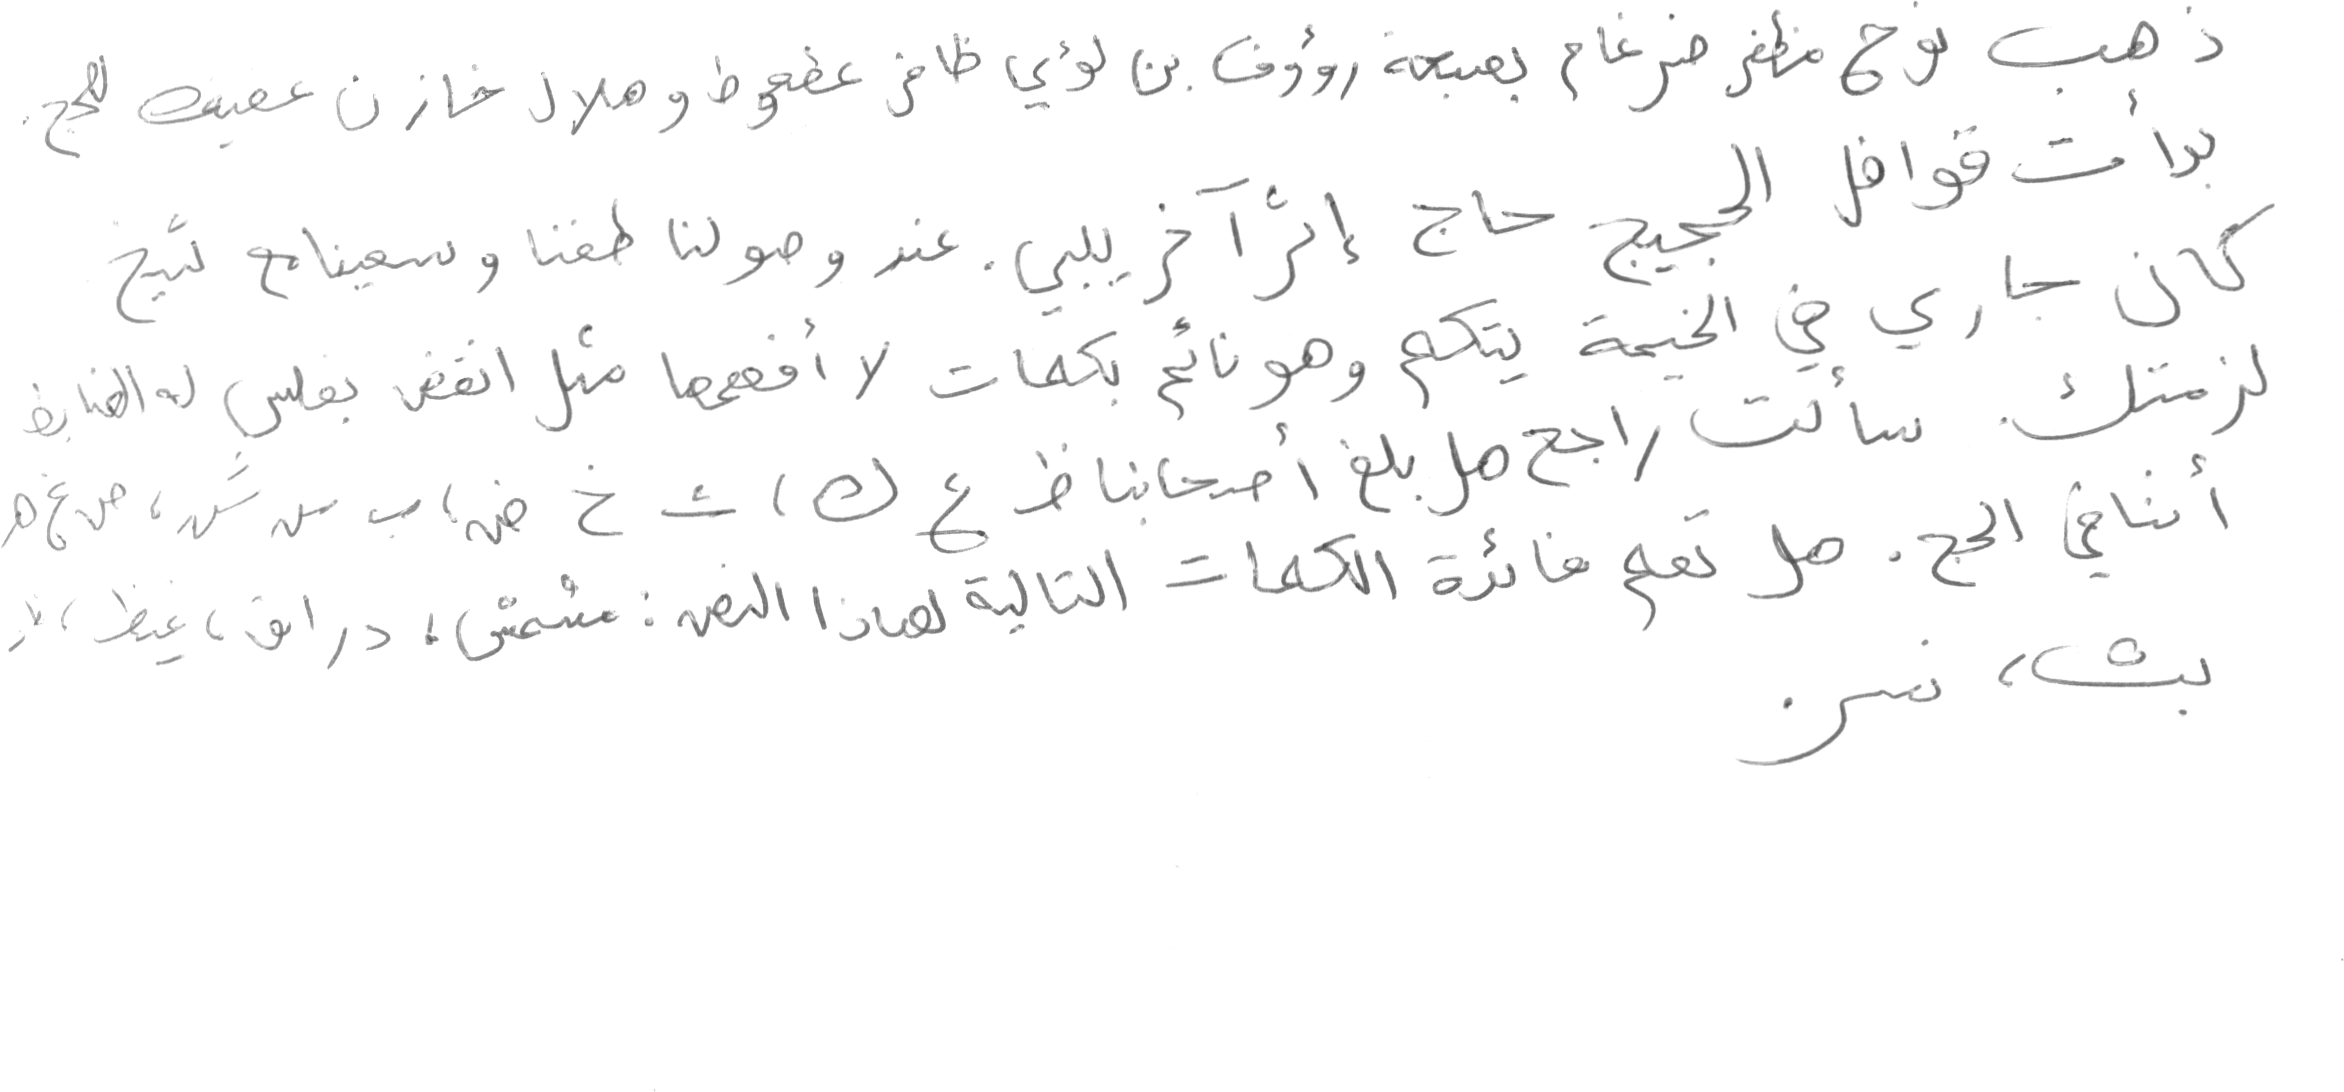 ذهب نوح مظفر ضرغام بصحبة رؤوف بن لؤي ظافر عضعوط وهلال خازن عفيف للحج.
بدأت قوافل الحجيج حاج إثر آخر يلبي. عند وصولنا طفنا وسعينا مع شيخ
كان جاري في الخيمة يتكلم وهو نائم بكلمات لا أفهمها مثل انقض بغلس له الضابط
لزمتك. سألت راجح هل بلغ أصحابنا ظ غ ك، ث خ ض، ب س ش، ص غ ه
أثنا في الحج. هل تعلم فائدة الكلمات التالية لهاذا النص: مشمش، دراق، غيظ،
بث، نسر.